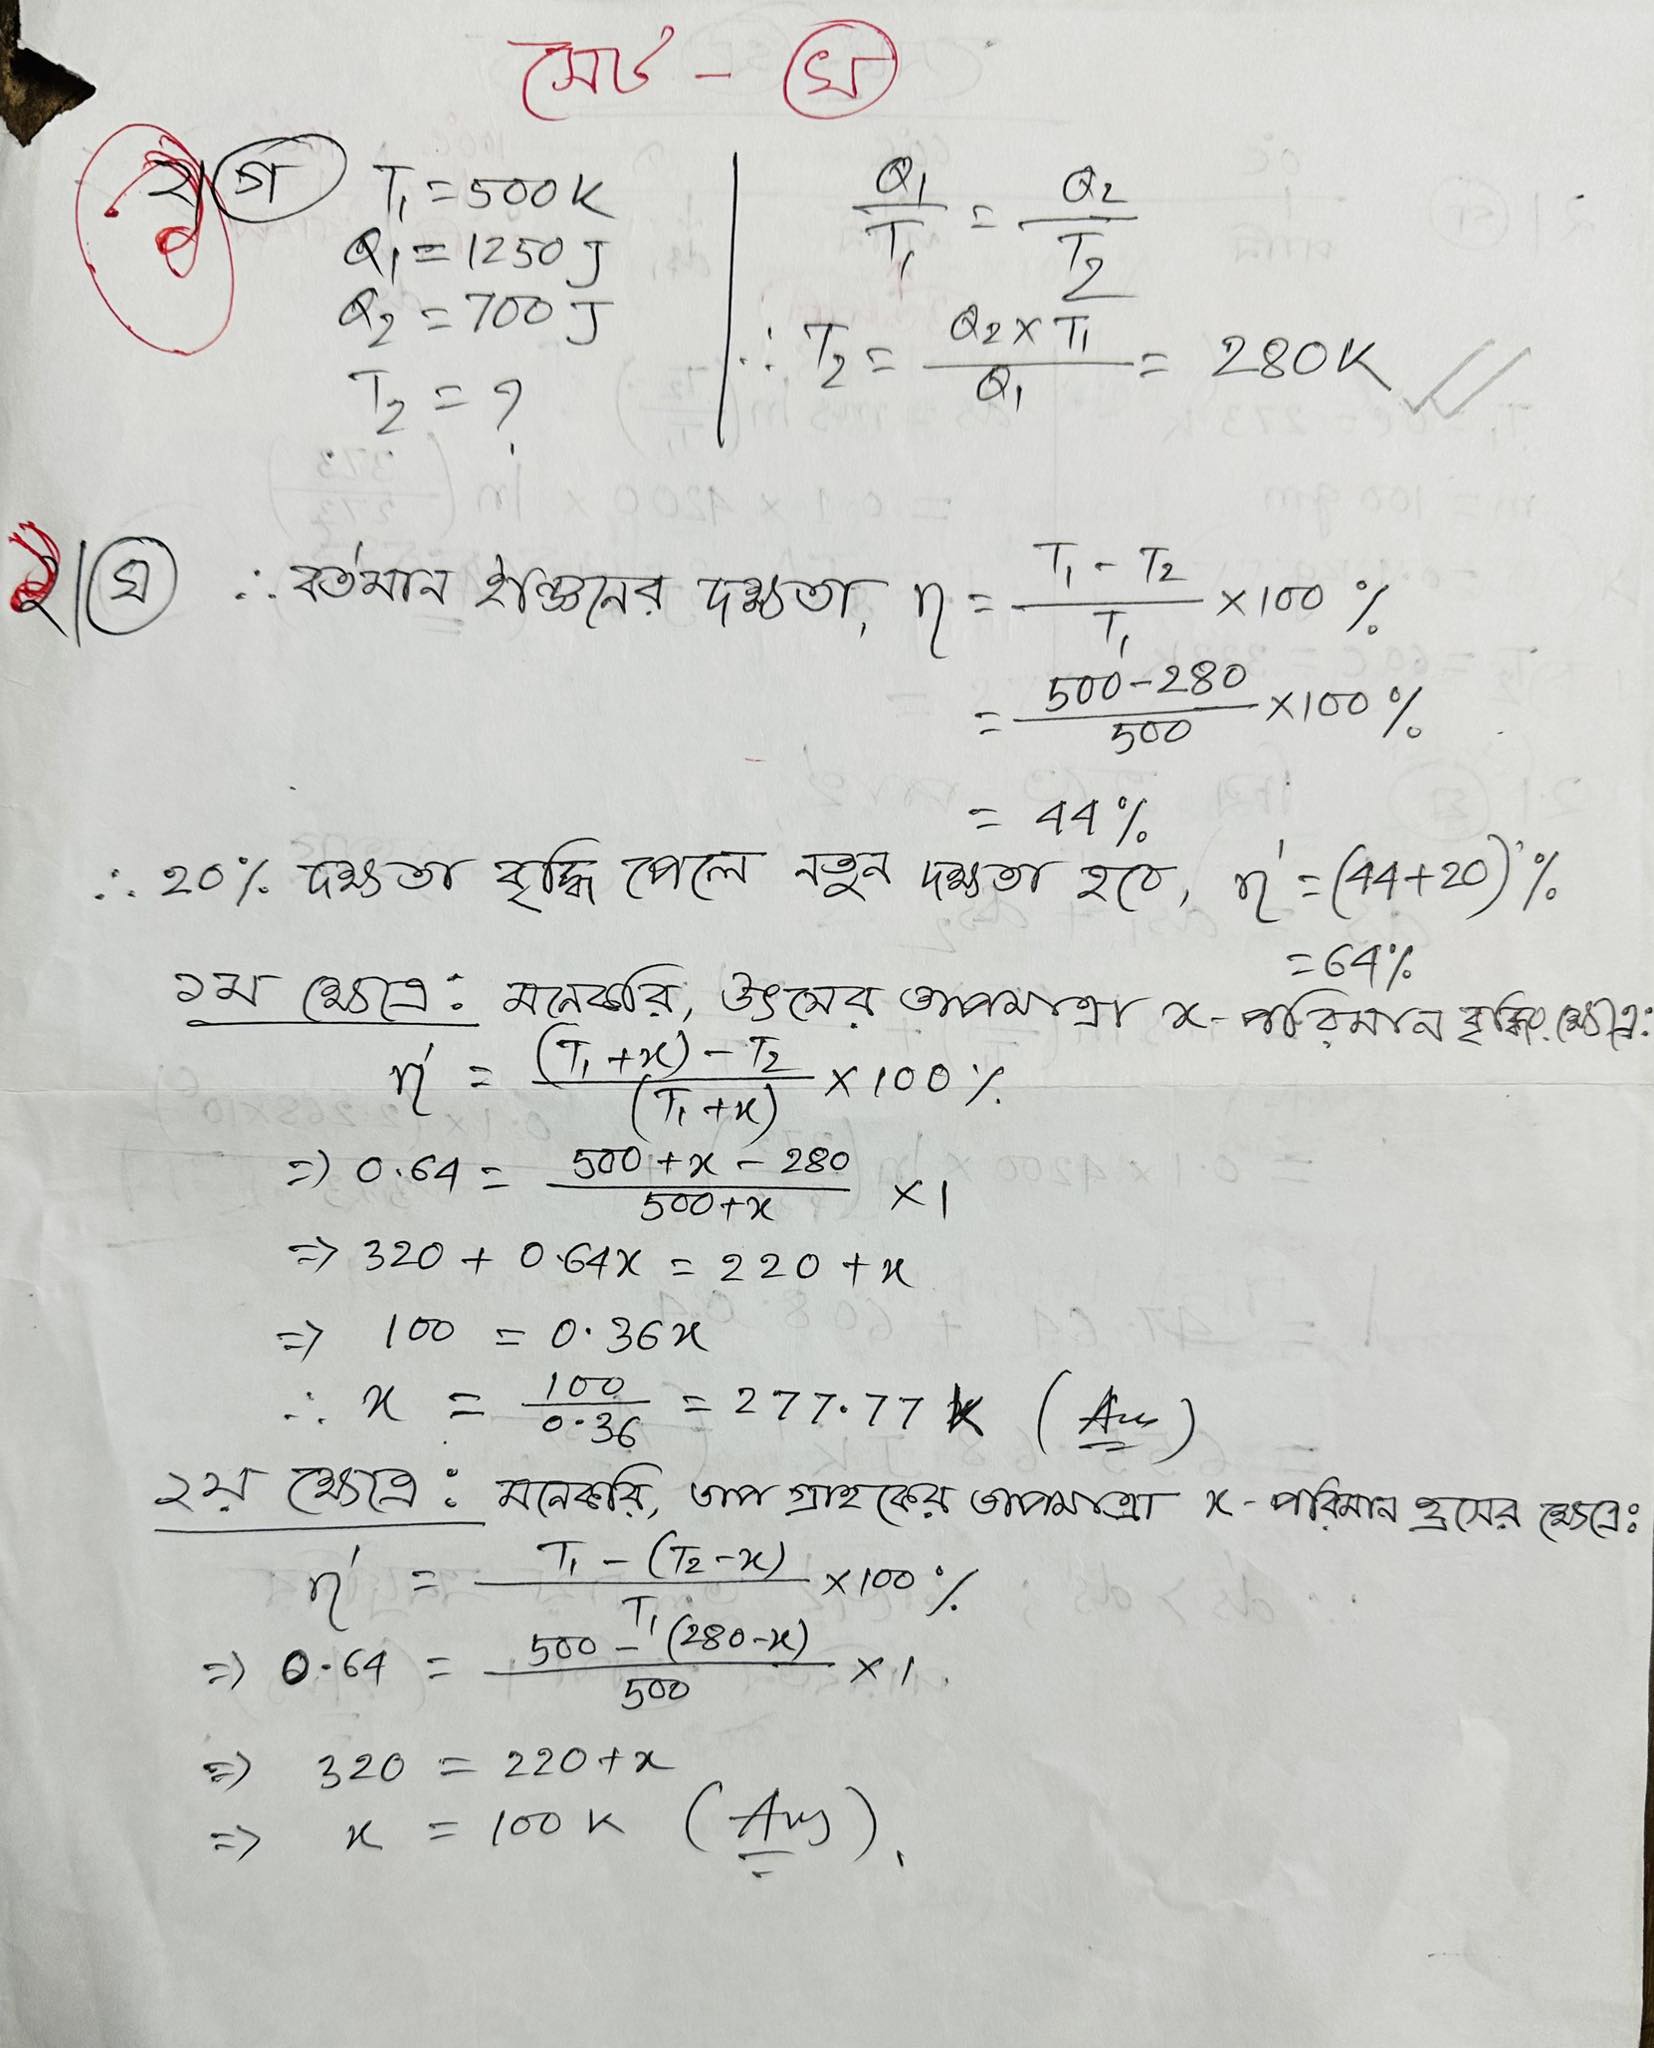 সেট - (ঘ)
২| (গ) T₁ = 500K
Q₁ = 1250 J
Q₂ = 700 J
T₂ = ?
Q₁/T₁ = Q₂/T₂
∴ T₂ = (Q₂ × T₁)/Q₁ = 280K
২| (ঘ) ∴ বর্তমান ইঞ্জিনের দক্ষতা, η = (T₁ - T₂)/T₁ × 100 %
= (500 - 280)/500 × 100 %
= 44 %
∴ 20% দক্ষতা বৃদ্ধি পেলে নতুন দক্ষতা হবে, η' = (44+20) %
= 64%
১ম ক্ষেত্রে: মনেকরি, উৎসের তাপমাত্রা x-পরিমান বৃদ্ধির ক্ষেত্রে:
η' = ((T₁ + x) - T₂)/(T₁ + x) × 100 %
⇒ 0.64 = (500 + x - 280)/(500 + x) × 1
⇒ 320 + 0.64x = 220 + x
⇒ 100 = 0.36x
∴ x = 100/0.36 = 277.77 K (Ans)
২য় ক্ষেত্রে: মনেকরি, তাপ গ্রাহকের তাপমাত্রা x-পরিমান হ্রসের ক্ষেত্রে:
η' = (T₁ - (T₂ - x))/T₁ × 100 %
⇒ 0.64 = (500 - (280 - x))/500 × 1
⇒ 320 = 220 + x
⇒ x = 100 K (Ans).